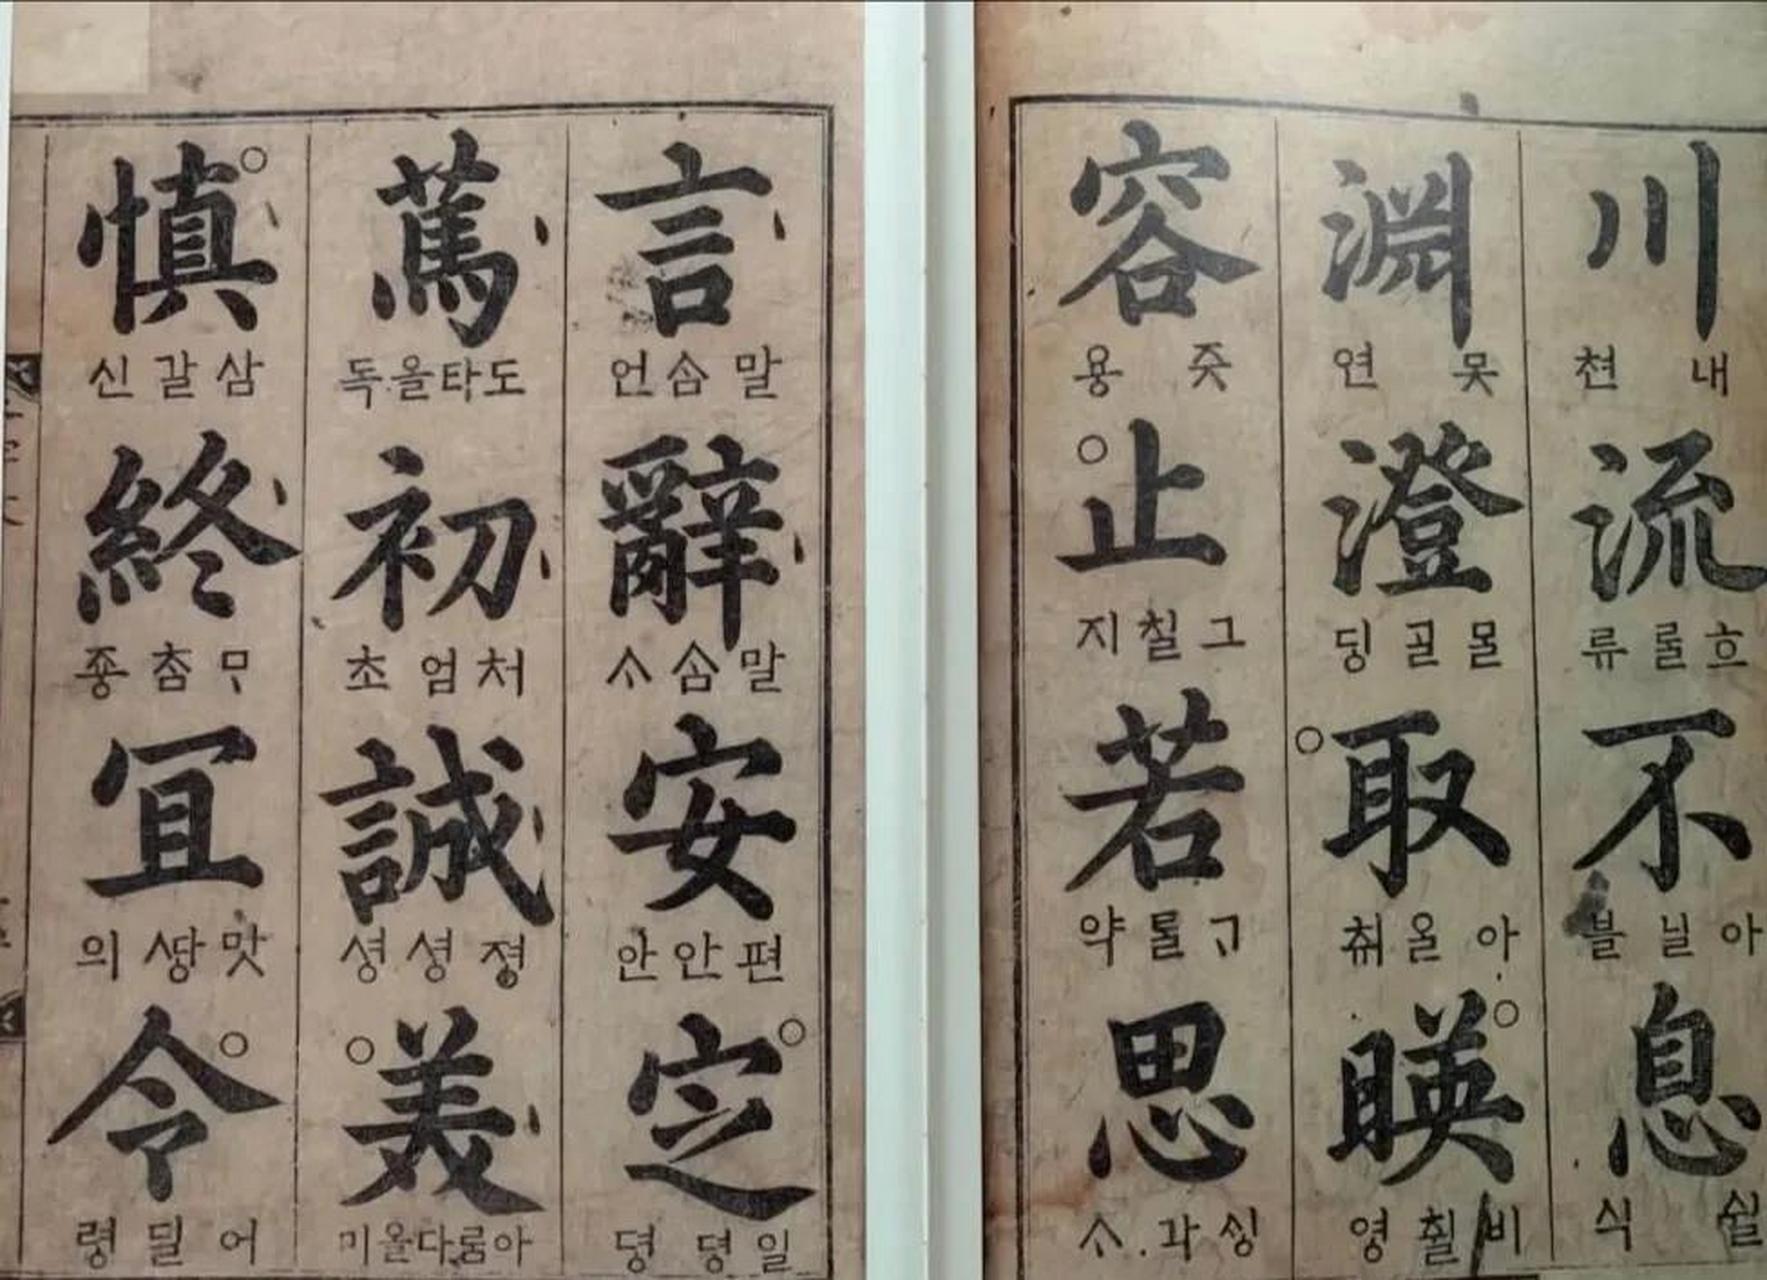 川 내 쳔
流 흐를 류
不 아닐 블
息 쉴 식
淵 못 연
澄 ᄆᆞᆯᄀᆞᆯ 딩
取 아올 취
暎 비췰 영
容 즛 용
止 그칠 지
若 ᄀᆞᄐᆞᆯ 약
思 ᄉᆡᆼ각 ᄉᆞ
言 말ᄉᆞᆷ 언
辭 말ᄉᆞᆷ ᄉᆞ
安 편안 안
定 일뎡 뎡
篤 도타올 독
初 처엄 초
誠 졍셩 셩
美 아름다올 미
愼 삼갈 신
終 ᄆᆞᄎᆞᆷ 죵
宜 맛ᄯᅡᆼ 의
令 어딜 령